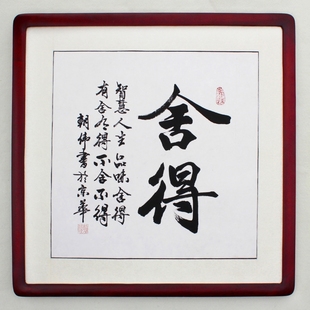 舍得
智慧人生品味舍得
有舍有得不舍不得
朝伟书於京华